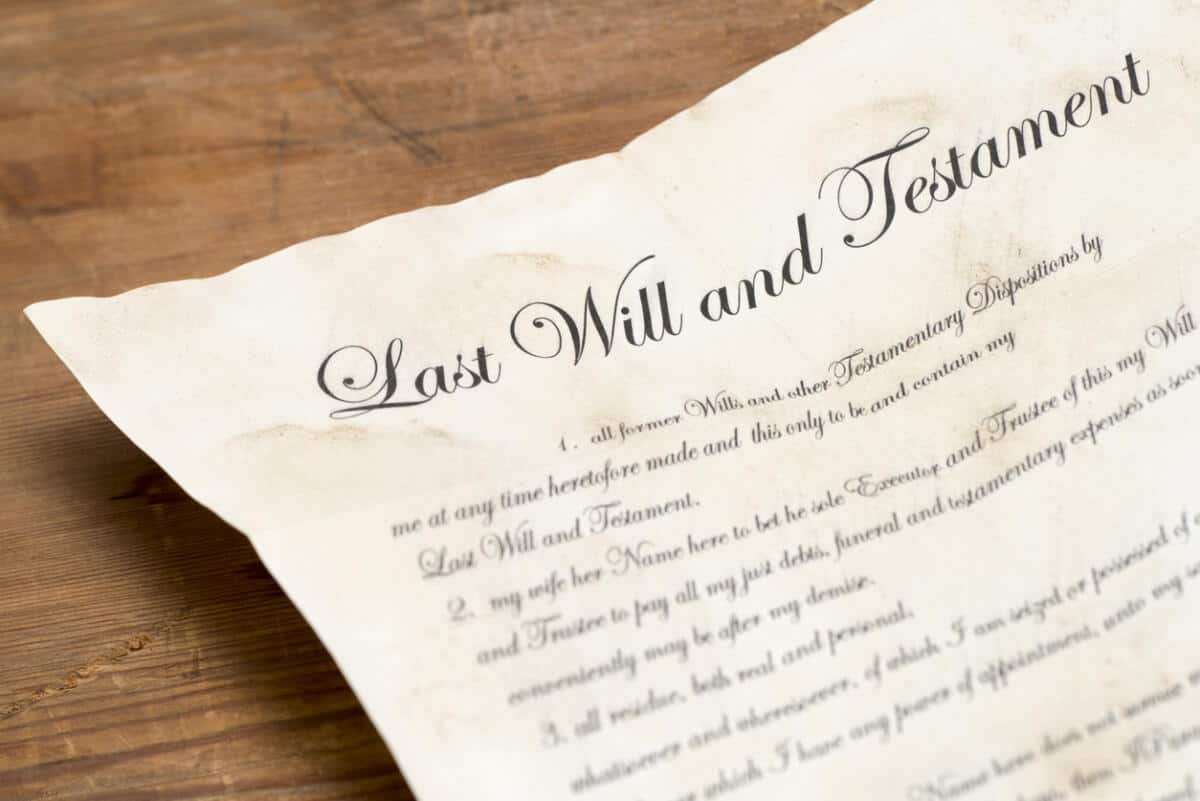 Last Will and Testament
1. all former Wills and other Testamentary Dispositions by
me at any time heretofore made and this only to be and contain my
Last Will and Testament.
2. my wife her Name here to bet he sole Executor and Trustee of this my Will
and Trustee to pay all my just debts, funeral and testamentary expenses as soon
conveniently may be after my demise.
3. all residue, both real and personal,
whatsoever and wheresoever, of which I am seized or possessed of
which I have any power of appointment, unto my
Name here does not survive
then I